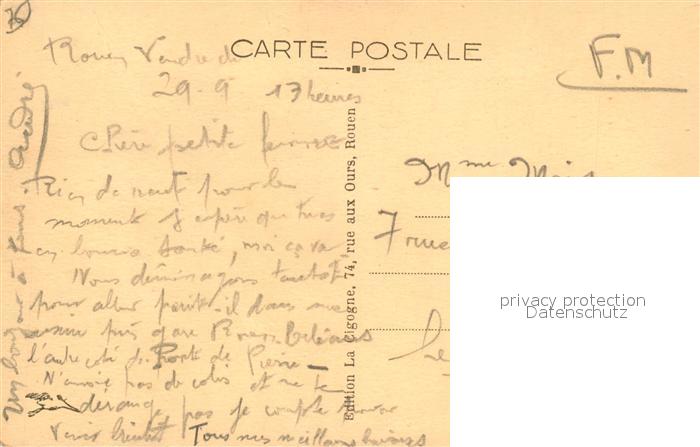 76
CARTE POSTALE
F.M
Rouen Vendredi
29-9 17 heures
Chère petite femme
Rien de neuf pour le
moment j'espère que tu es
en bonne santé, moi ça va
Nous déménageons tantôt
pour aller parait-il dans une
usine près gare Rouen-Orléans
l'autre coté du Pont de Pierre -
N'envoie pas de colis et ne te
dérange pas je compte
venir bientôt Tous mes meilleurs baisers
Un bonjour à tous. André
Edition La Cigogne, 74, rue aux Ours, Rouen
Mme
7 rue
privacy protection
Datenschutz